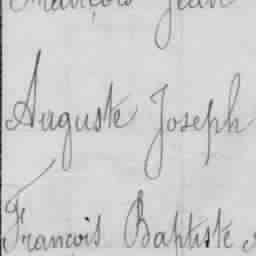 François Jean
Auguste Joseph
François Baptiste